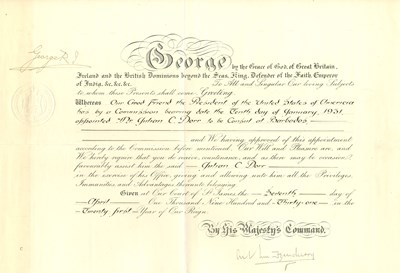 George R. I.
George by the Grace of God, of Great Britain,
Ireland and the British Dominions beyond the Seas, King, Defender of the Faith, Emperor
of India, &c. &c. &c. To All and Singular Our loving Subjects
to whom these Presents shall come Greeting.
Whereas Our Good Friend the President of the United States of America
has by a Commission bearing date the Tenth day of January, 1931,
appointed Mr C. Dorr to be Consul at Barbados
and We having approved of this appointment
according to the Commission before mentioned, Our Will and Pleasure are, and
We hereby require that you do receive, countenance, and as there may be occasion,
favourably assist him the said C. Dorr
in the exercise of his Office, giving and allowing unto him all the Privileges,
Immunities and Advantages thereunto belonging
Given at Our Court of St James the Seventh day of
April One Thousand Nine Hundred and Thirty-one in the
Twenty first Year of Our Reign.
By His Majesty's Command.